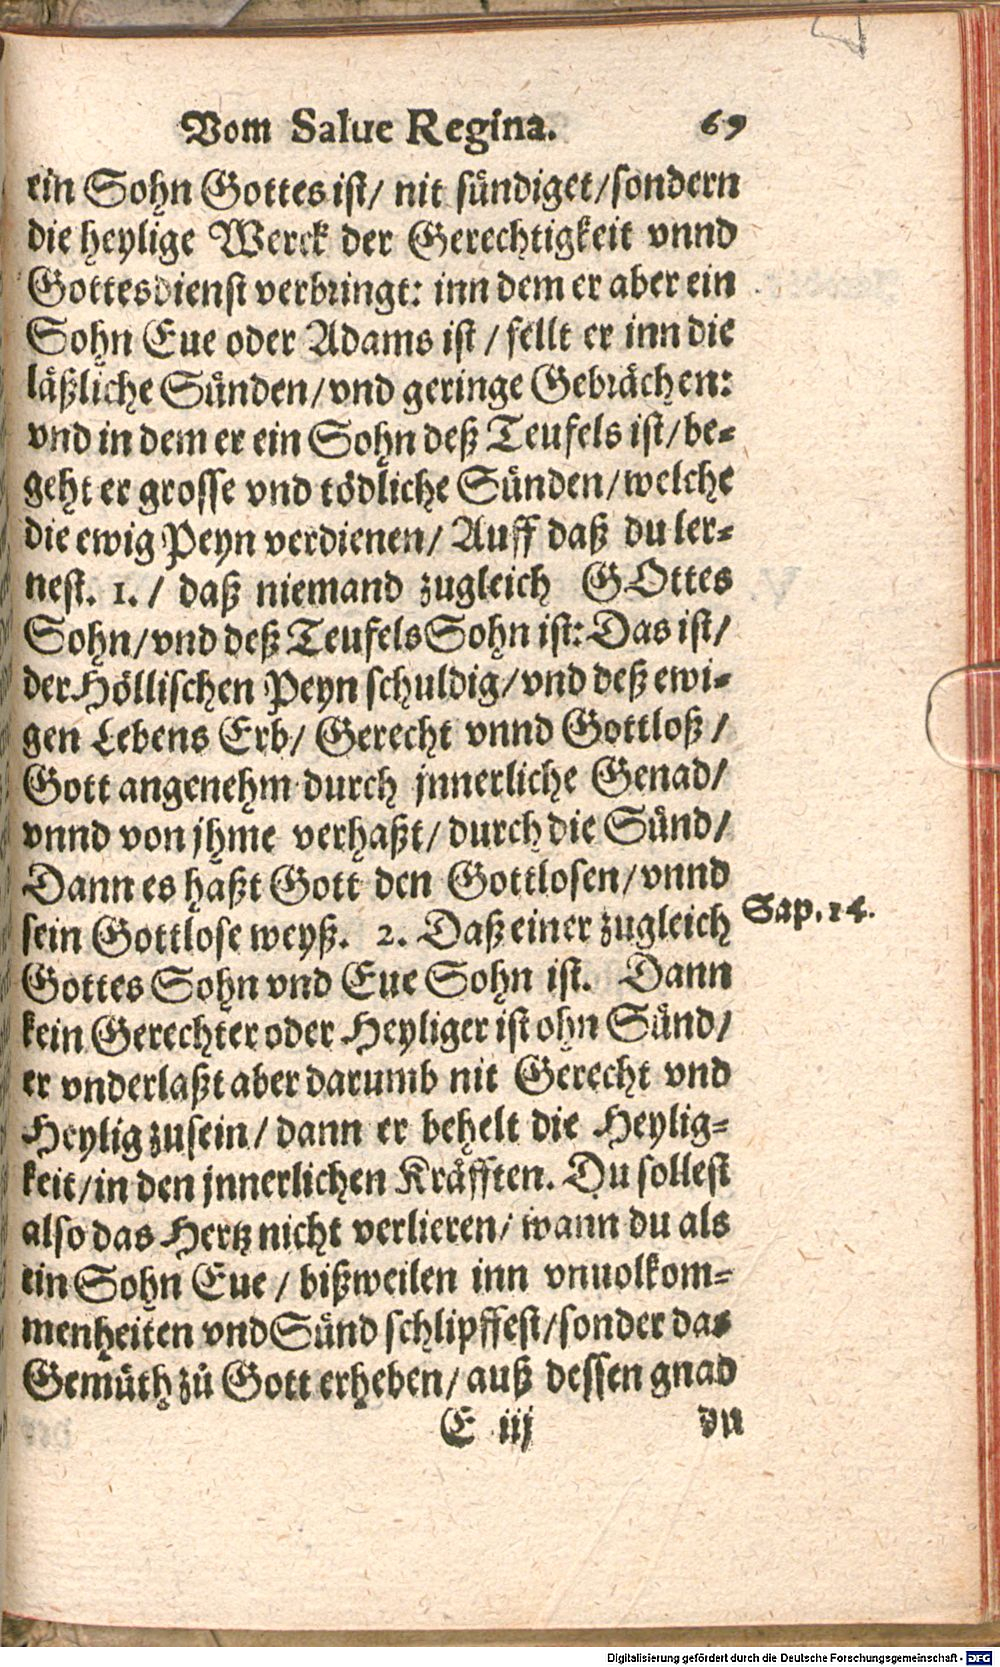 Vom Salue Regina. 69
ein Sohn Gottes ist/ nit sündiget/sondern
die heylige Werck der Gerechtigkeit vnnd
Gottesdienst verbringt: inn dem er aber ein
Sohn Eue oder Adams ist / fellt er inn die
läßliche Sünden/vnd geringe Gebrächen:
vnd in dem er ein Sohn deß Teufels ist/be-
geht er grosse vnd tödliche Sünden/welche
die ewig Peyn verdienen/ Auff daß du ler-
nest. 1. / daß niemand zugleich GOttes
Sohn/vnd deß Teufels Sohn ist: Das ist/
der Höllischen Peyn schuldig/vnd deß ewi-
gen Lebens Erb/ Gerecht vnnd Gottloß /
Gott angenehm durch jnnerliche Genad/
vnnd von jhme verhaßt/ durch die Sünd/
Dann es haßt Gott den Gottlosen/vnnd
sein Gottlose weyß. 2. Daß einer zugleich
Sap. 14.
Gottes Sohn vnd Eue Sohn ist. Dann
kein Gerechter oder Heyliger ist ohn Sünd/
er vnderlaßt aber darumb nit Gerecht vnd
Heylig zusein/ dann er behelt die Heylig-
keit/in den jnnerlichen Kräfften. Du sollest
also das Hertz nicht verlieren/ wann du als
ein Sohn Eue / bißweilen inn vnuolkom-
menheiten vnd Sünd schlipffest/sonder das
Gemüth zů Gott erheben/ auß dessen gnad
E iij du
Digitalisierung gefördert durch die Deutsche Forschungsgemeinschaft - DFG